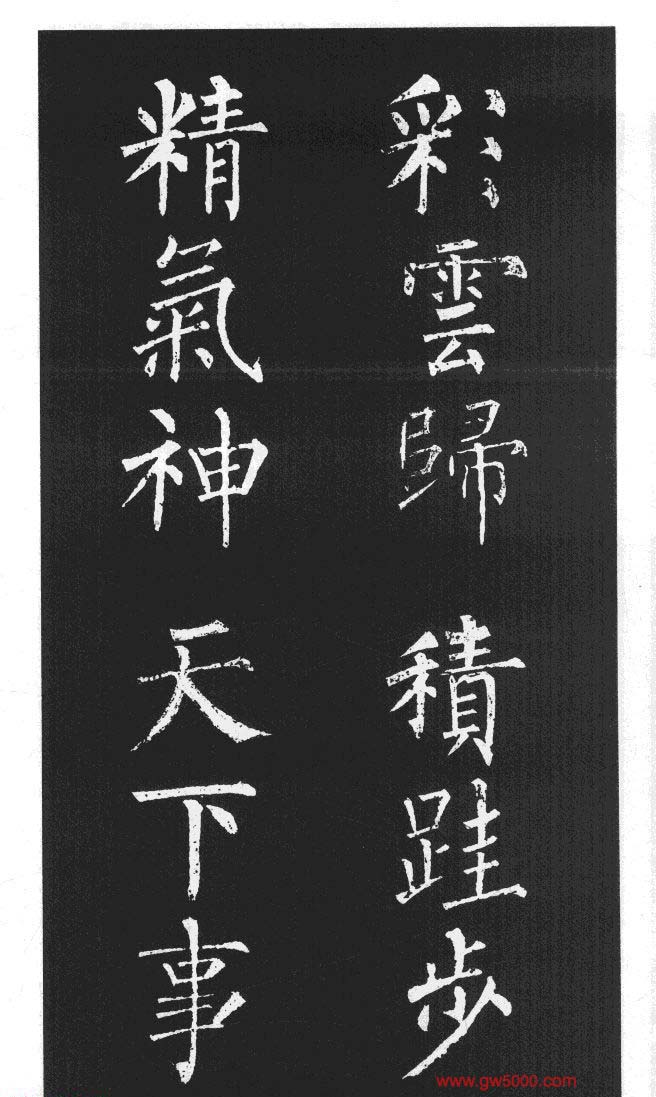 彩雲歸
精氣神
積跬步
天下事
www.gw5000.com